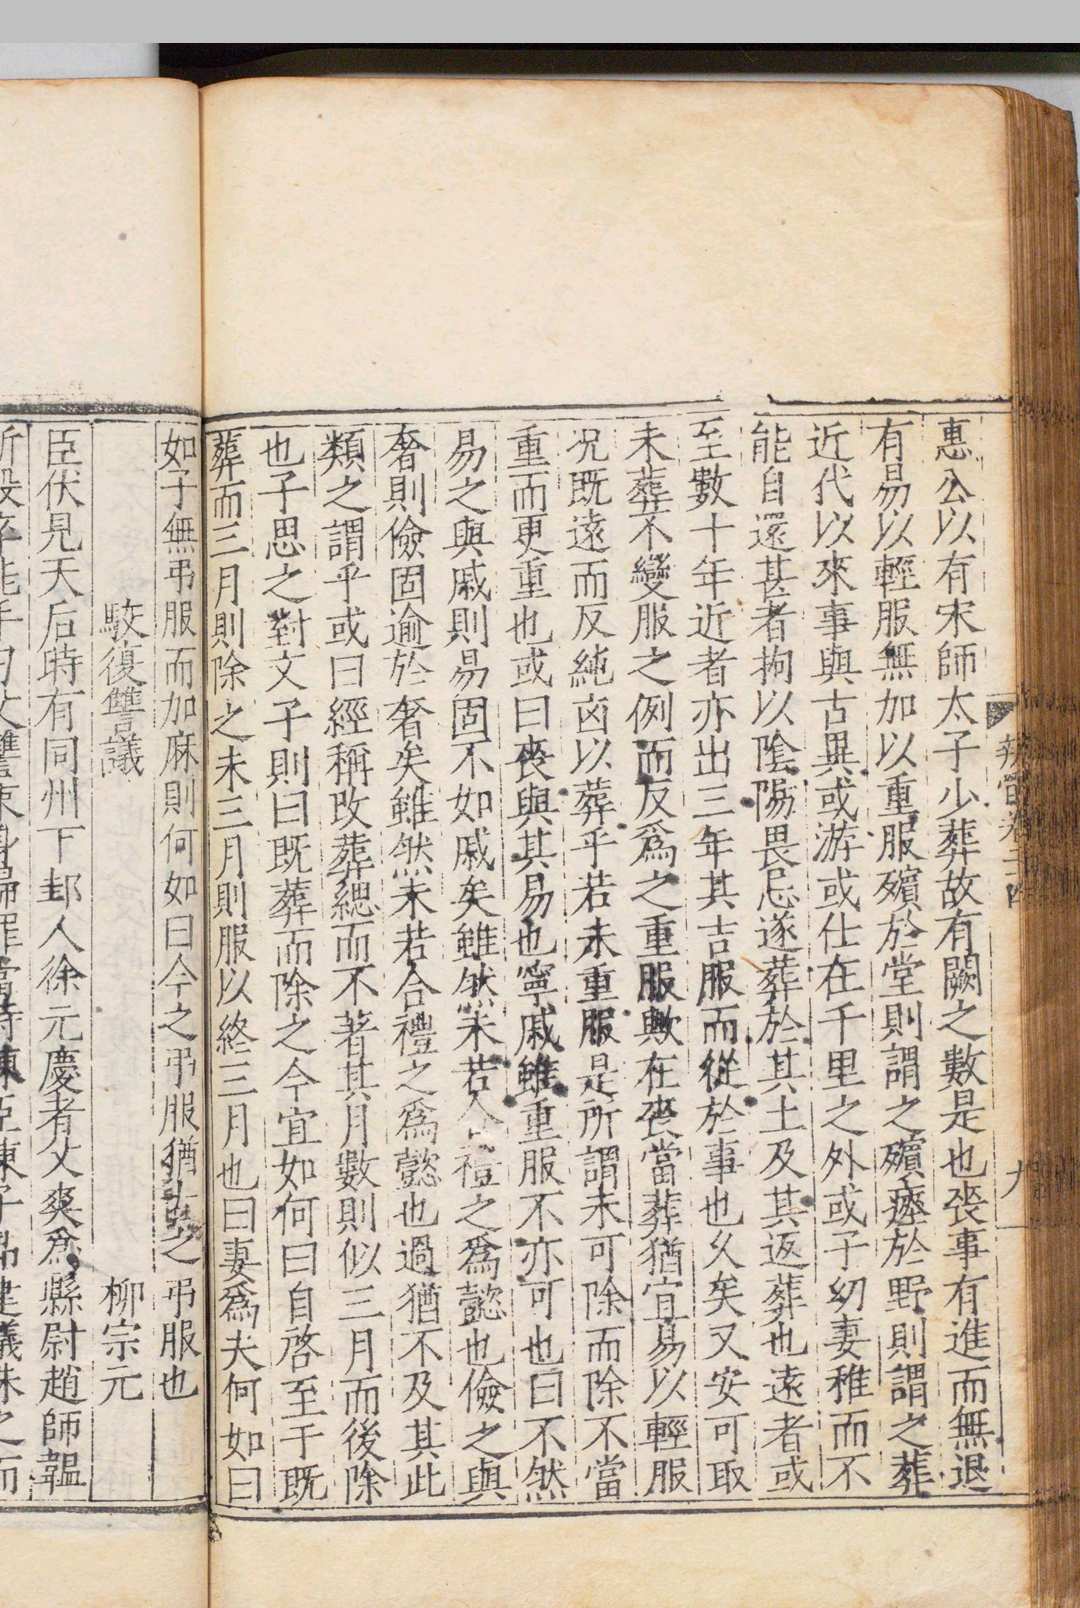 惠公以有宋師太子少葬故有闕之數是也喪事有進而無退
有易以輕服無加以重服殯於堂則謂之殯瘞於野則謂之葬
近代以來事與古異或游或仕在千里之外或子幼妻稚而不
能自還甚者拘以陰陽畏忌遂葬於其土及其返葬也遠者或
至數十年近者亦出三年其吉服而從於事也久矣又安可取
未葬不變服之例而反爲之重服歟在喪當葬猶宜易以輕服
况既遠而反純凶以葬乎若未重服是所謂未可除而除不當
重而更重也或曰喪與其易也寧戚雖重服不亦可也曰不然
易之與戚則易固不如戚矣雖然未若合禮之爲懿也儉之與
奢則儉固逾於奢矣雖然未若合禮之爲懿也過猶不及其此
類之謂乎或曰經稱改葬緦而不著其月數則似三月而後除
也子思之對文子則曰既葬而除之今宜如何曰自啓至于既
葬而三月則除之未三月則服以終三月也曰妻爲夫何如曰
如子無弔服而加麻則何如曰今之弔服猶古之弔服也
駁復讐議 柳宗元
臣伏見天后時有同州下邽人徐元慶者父爽爲縣尉趙師韞